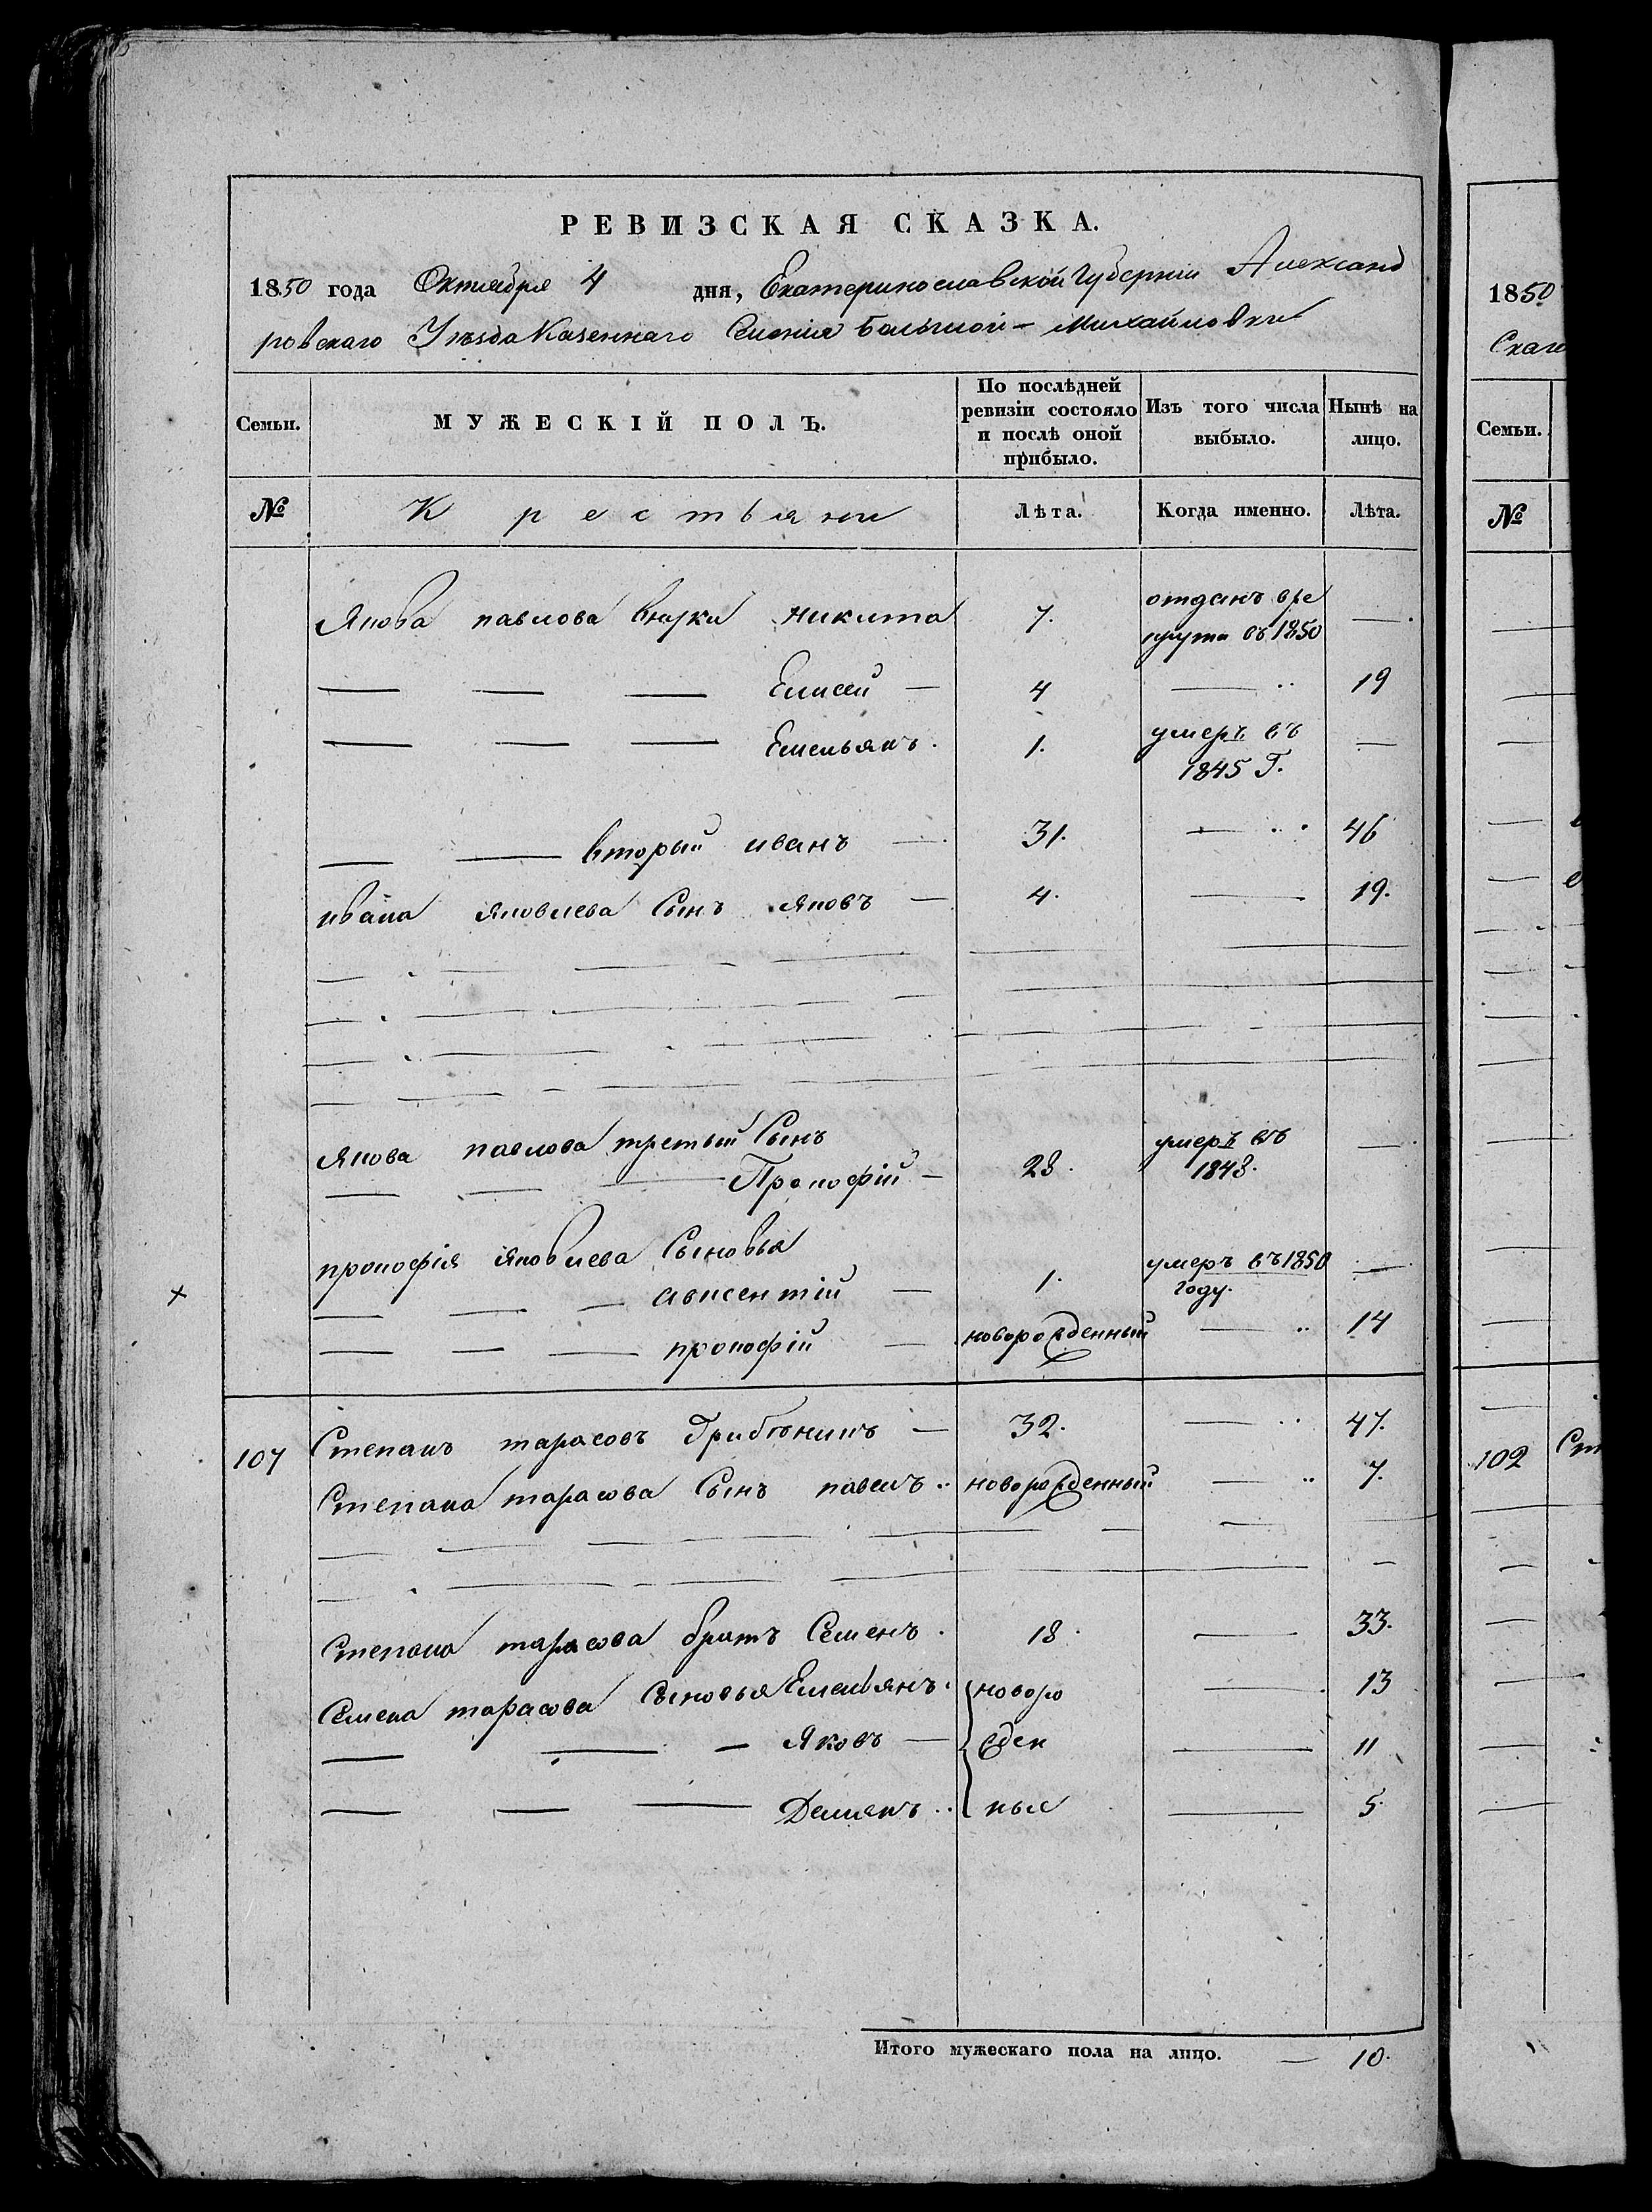 РЕВИЗСКАЯ СКАЗКА.
1850 года Октября 4 дня, Екатеринославской Губерніи Александ
ровскаго Уѣзда Казеннаго Селенія Большой-Михайловки
Семьи. МУЖЕСКІЙ ПОЛЪ. По послѣдней ревизіи состояло и послѣ оной прибыло. Изъ того числа выбыло. Нынѣ на лицо.
№ Крестьяни Лѣта. Когда именно. Лѣта.
Якова павлова внуки никита 7. отданъ вре
крута въ 1850 —
— — — Елисей — 4 — 19
— — — Емельянъ. 1. умеръ въ —
1845 Г.
— — вторый иванъ — 31. — 46
ивана яковлева Сынъ яковъ — 4. — 19.
Якова павлова третьій Сынъ умеръ въ —
— — — Прокофій — 28. 1848.
прокофія яковлева Сыновья
— — — авксентій — 1. умеръ въ 1850 —
году.
— — — прокофій — новорожденный — 14
107 Степанъ тарасовъ Грибѣникъ — 32. — 47.
Степана тарасова Сынъ павелъ новорожденный — 7.
Степана тарасова братъ Семенъ. 18. — 33.
Семена тарасова Сыновья Емельянъ. новоро — 13
— — — Яковъ — жден — 11
— — — Демянъ ные — 5.
Итого мужескаго пола на лицо. — 10.
1850
Скаго
Семьи.
№
102 Ст